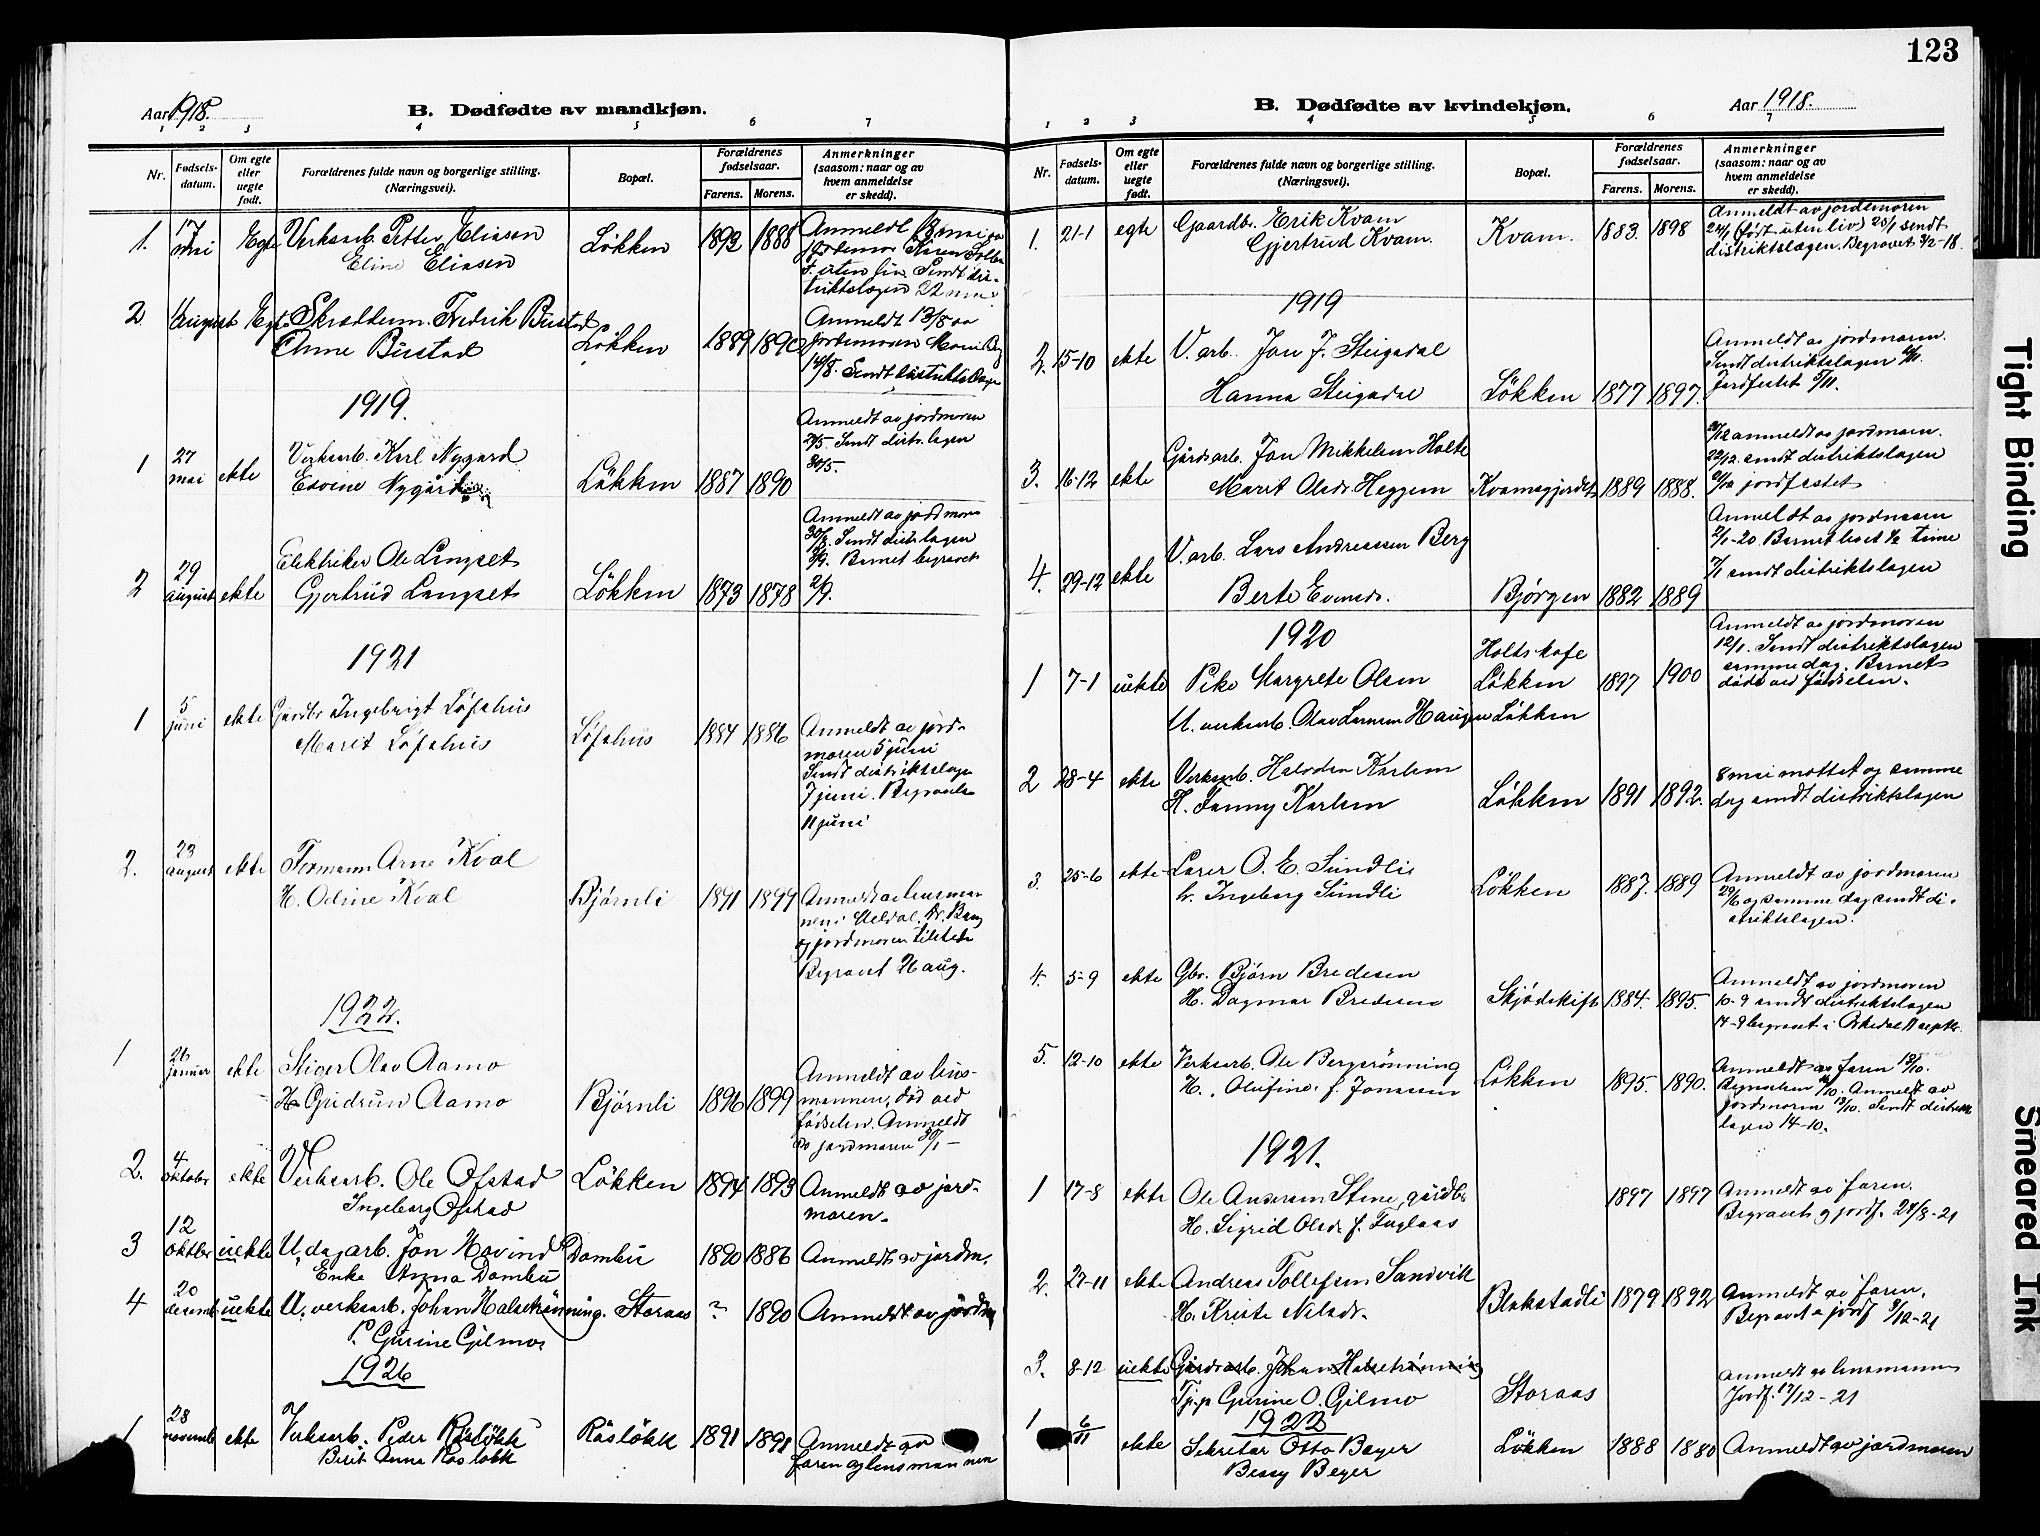 123
Aar 1918.
B. Dødfødte av mandkjøn.
1 2 3 4 5 6 7
Nr.
Fødsels-datum.
Om egte eller uegte født.
Forældrenes fulde navn og borgerlige stilling. (Næringsvei).
Bopæl.
Forældrenes fødselsaar.
Farens. Morens.
Anmerkninger (saasom: naar og av hvem anmeldelse er skedd).
1. 17 mai Egte Verksarb. Petter Eliasen Løkken 1892 1888 Anmeldt 18 mai
Eline Eliasen
uten liv. Sendt
2 August Egte Fredrik Bustad Løkken 1889 1890 Anmeldt 13/8
Anne Bustad
14/8. Sendt
1919.
1 27 mai ekte Verksarb. Karl Nygård Løkken 1887 1890 Anmeldt av jordmoren
Edvine Nygård
Sendt distr.lægen
30/5.
2 29 august ekte Elektriker Ole Langset Løkken 1873 1878 Anmeldt av jordmoren
Gjertrud Langset
30/8. Sendt distr.lægen
Barnet begravet
1921
1 5 juni ekte Gårdbr Ingebrigt Løfshus Løfshus 1884 1886 Anmeldt av jord-
Marit Løfshus
moren 5 juni
Sendt distriktslæge
7 juni. Begravelse
11 juni
2. 23 august ekte Formann Arne Kval Bjørnli 1891 1899 Anmeldt av lensman
H. Odine Kval
nen i Meldal, Dr. Bang
og jordmoren tilstede
Begravet 26 aug.
1922.
1 26 januar ekte Stiger Olav Aamo Bjørnli 1896 1899 Anmeldt av lens-
H. Gudrun Aamo
mannen, død ved
fødselen. Anmeldt
av jordmoren 30/1-
2. 4 oktober ekte Verksarb. Ole Ofstad Løkken 1894 1893 Anmeldt av jord-
Ingeborg Ofstad
moren.
3 12 oktbr uekte U. dagarb. Jon Hovind Dombu 1890 1886 Anmeldt av jordm.
Enke Anna Dombu
4 20 desemb uekte U. verksarb. Johan Halsetrønning. Storaas ? 1890 Anmeldt av jordm
P. Gurine Gilmo
1926
1 28 novemb ekte Verksarb. Peder Råsløkk Råsløkk 1891 1891 Anmeldt av
Birit Anna Råsløkk
faren og lensmannen
B. Dødfødte av kvindekjøn.
Aar 1918.
1 2 3 4 5 6 7
Nr.
Fødsels-datum.
Om egte eller uegte født.
Forældrenes fulde navn og borgerlige stilling. (Næringsvei).
Bopæl.
Forældrenes fødselsaar.
Farens. Morens.
Anmerkninger (saasom: naar og av hvem anmeldelse er skedd).
1. 21-1 egte Gaardbr. Erik Kvam Kvam. 1883. 1898 Anmeldt av jordemoren
Gjertrud Kvam.
24/1 (født uten liv) 25/1 sendt
distriktslægen. Begravet 3/2-18.
1919
2. 15-10 ekte V. arb. Jon J. Steigedal Anmeldt av jordmoren.
Hanna Steigedal Løkken 1877 1897.
Sendt distriktslægen
Jordfestet
3. 16-12 ekte Gårdsarb. Jon Mikkelsen Holte anmeldt av jordmoren.
Marit Olsdr. Heggem Kvamsgjerdet 1889 1888.
22/12. sendt distriktslægen
jordfæstet
4. 29-12 ekte V. arb. Lars Andreassen Berg Anmeldt av jordmoren
Berte Evensdr. Bjørgen 1882 1889
2/1-20 Barnet levet 1/2 time
sendt distriktslægen
1920
1 7-1 uekte Pike Margrete Olsen Løkken 1897 1900 Anmeldt av jordmoren
U. verksarb. Olav Larsen Haugen Løkken
12/1. Sendt distriktslægen
samme dag. Barnet
døde ved fødselen.
2 28-4 ekte Verksarb. Halvdan Karlsen Løkken 1891 1892. 8 mai mottet og samme
H. Fanny Karlsen
dag sendt distriktslægen
3. 25-6 ekte Lærer O. E. Sundli Løkken 1887. 1889 Anmeldt av jordmoren
h. Ingeborg Sundli
29/6 og samme dag sendt di-
striktslægen.
4. 5-9 ekte Gbr. Bjørn Bredesen Skjødskift 1884. 1895. Anmeldt av jordmoren
H. Dagmar Bredesen
10-9 sendt distriktslægen
14-9 begravet i Orkedal 11 septbr.
5. 12-10 ekte Verksarb. Ole Bergsrønning Løkken 1895. 1890. Anmeldt av faren 13/10.
H. Olufine f. Jonassen
Anmeldt av
jordmoren 13/10. Sendt distrikts
lægen 14-10.
1921.
1 17-8 ekte Ole Andersen Stene, gårdbr 1897 1897 Anmeldt av faren.
H. Sigrid Olsdr. f. Fuglaas
Begravet og jordf. 24/8-21
2. 27-11 ekte Andreas Tollefsen Sandvik Blokstadli 1879 1892 Anmeldt av faren.
H. Kriste Nilsdr.
Begravet og jordf 9/12-21
3. 8-12 uekte Gårdsarb. Johan Halsetrønning Anmeldt av lensmannen
Tj.p Gurine O. Gilmo Storaas
Jordf. 17/12-21
1922
1 6/11 ekte Sekretær Otto Beyer Løkken 1888 1880 Anmeldt av jordmoren
Bessy Beyer
Tight Binding
Smeared Ink